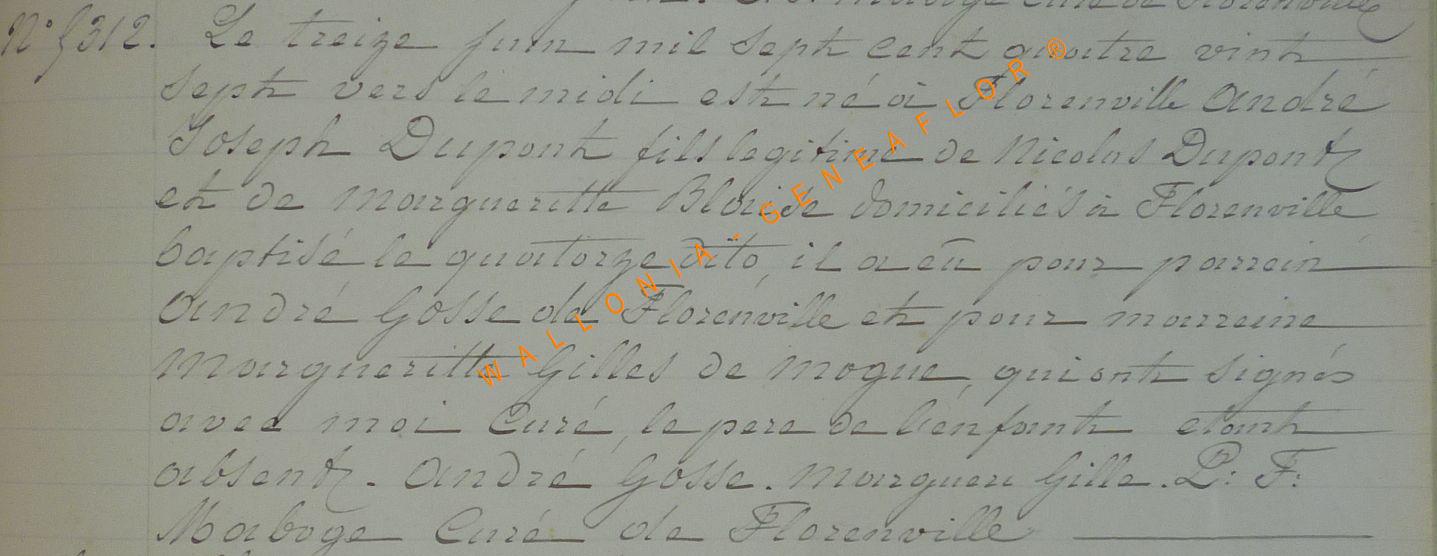 Curé de Florenville
N° 5312. Le treize juin mil sept cent quatre vint
sept vers le midi est né à Florenville andré
Joseph Dupont fils legitime de Nicolas Dupont
et de Margueritte Blaise domiciliés à Florenville
baptisé le quatorze dito, il a eu pour parrein
andré Gosse de Florenville et pour marreine
Margueritte Gilles de Mogue, qui ont signés
avec moi Curé, le pere de l'enfant etant
absent. andré Gosse. Margueri Gille. P: F:
Maboge Curé de Florenville
WALLONIA . GENEAFLOR ®